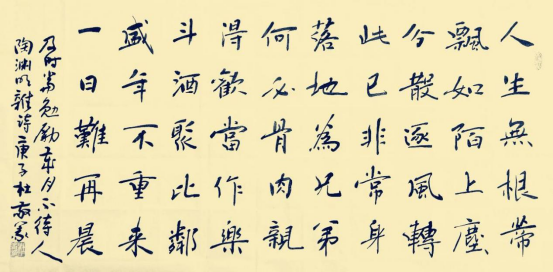 人生無根蔕
飄如陌上塵
分散逐風轉
此已非常身
落地為兄弟
何必骨肉親
得歡當作樂
斗酒聚比鄰
盛年不重来
一日難再晨
及时當勉勵歲月不待人
陶淵明雜詩庚子杜